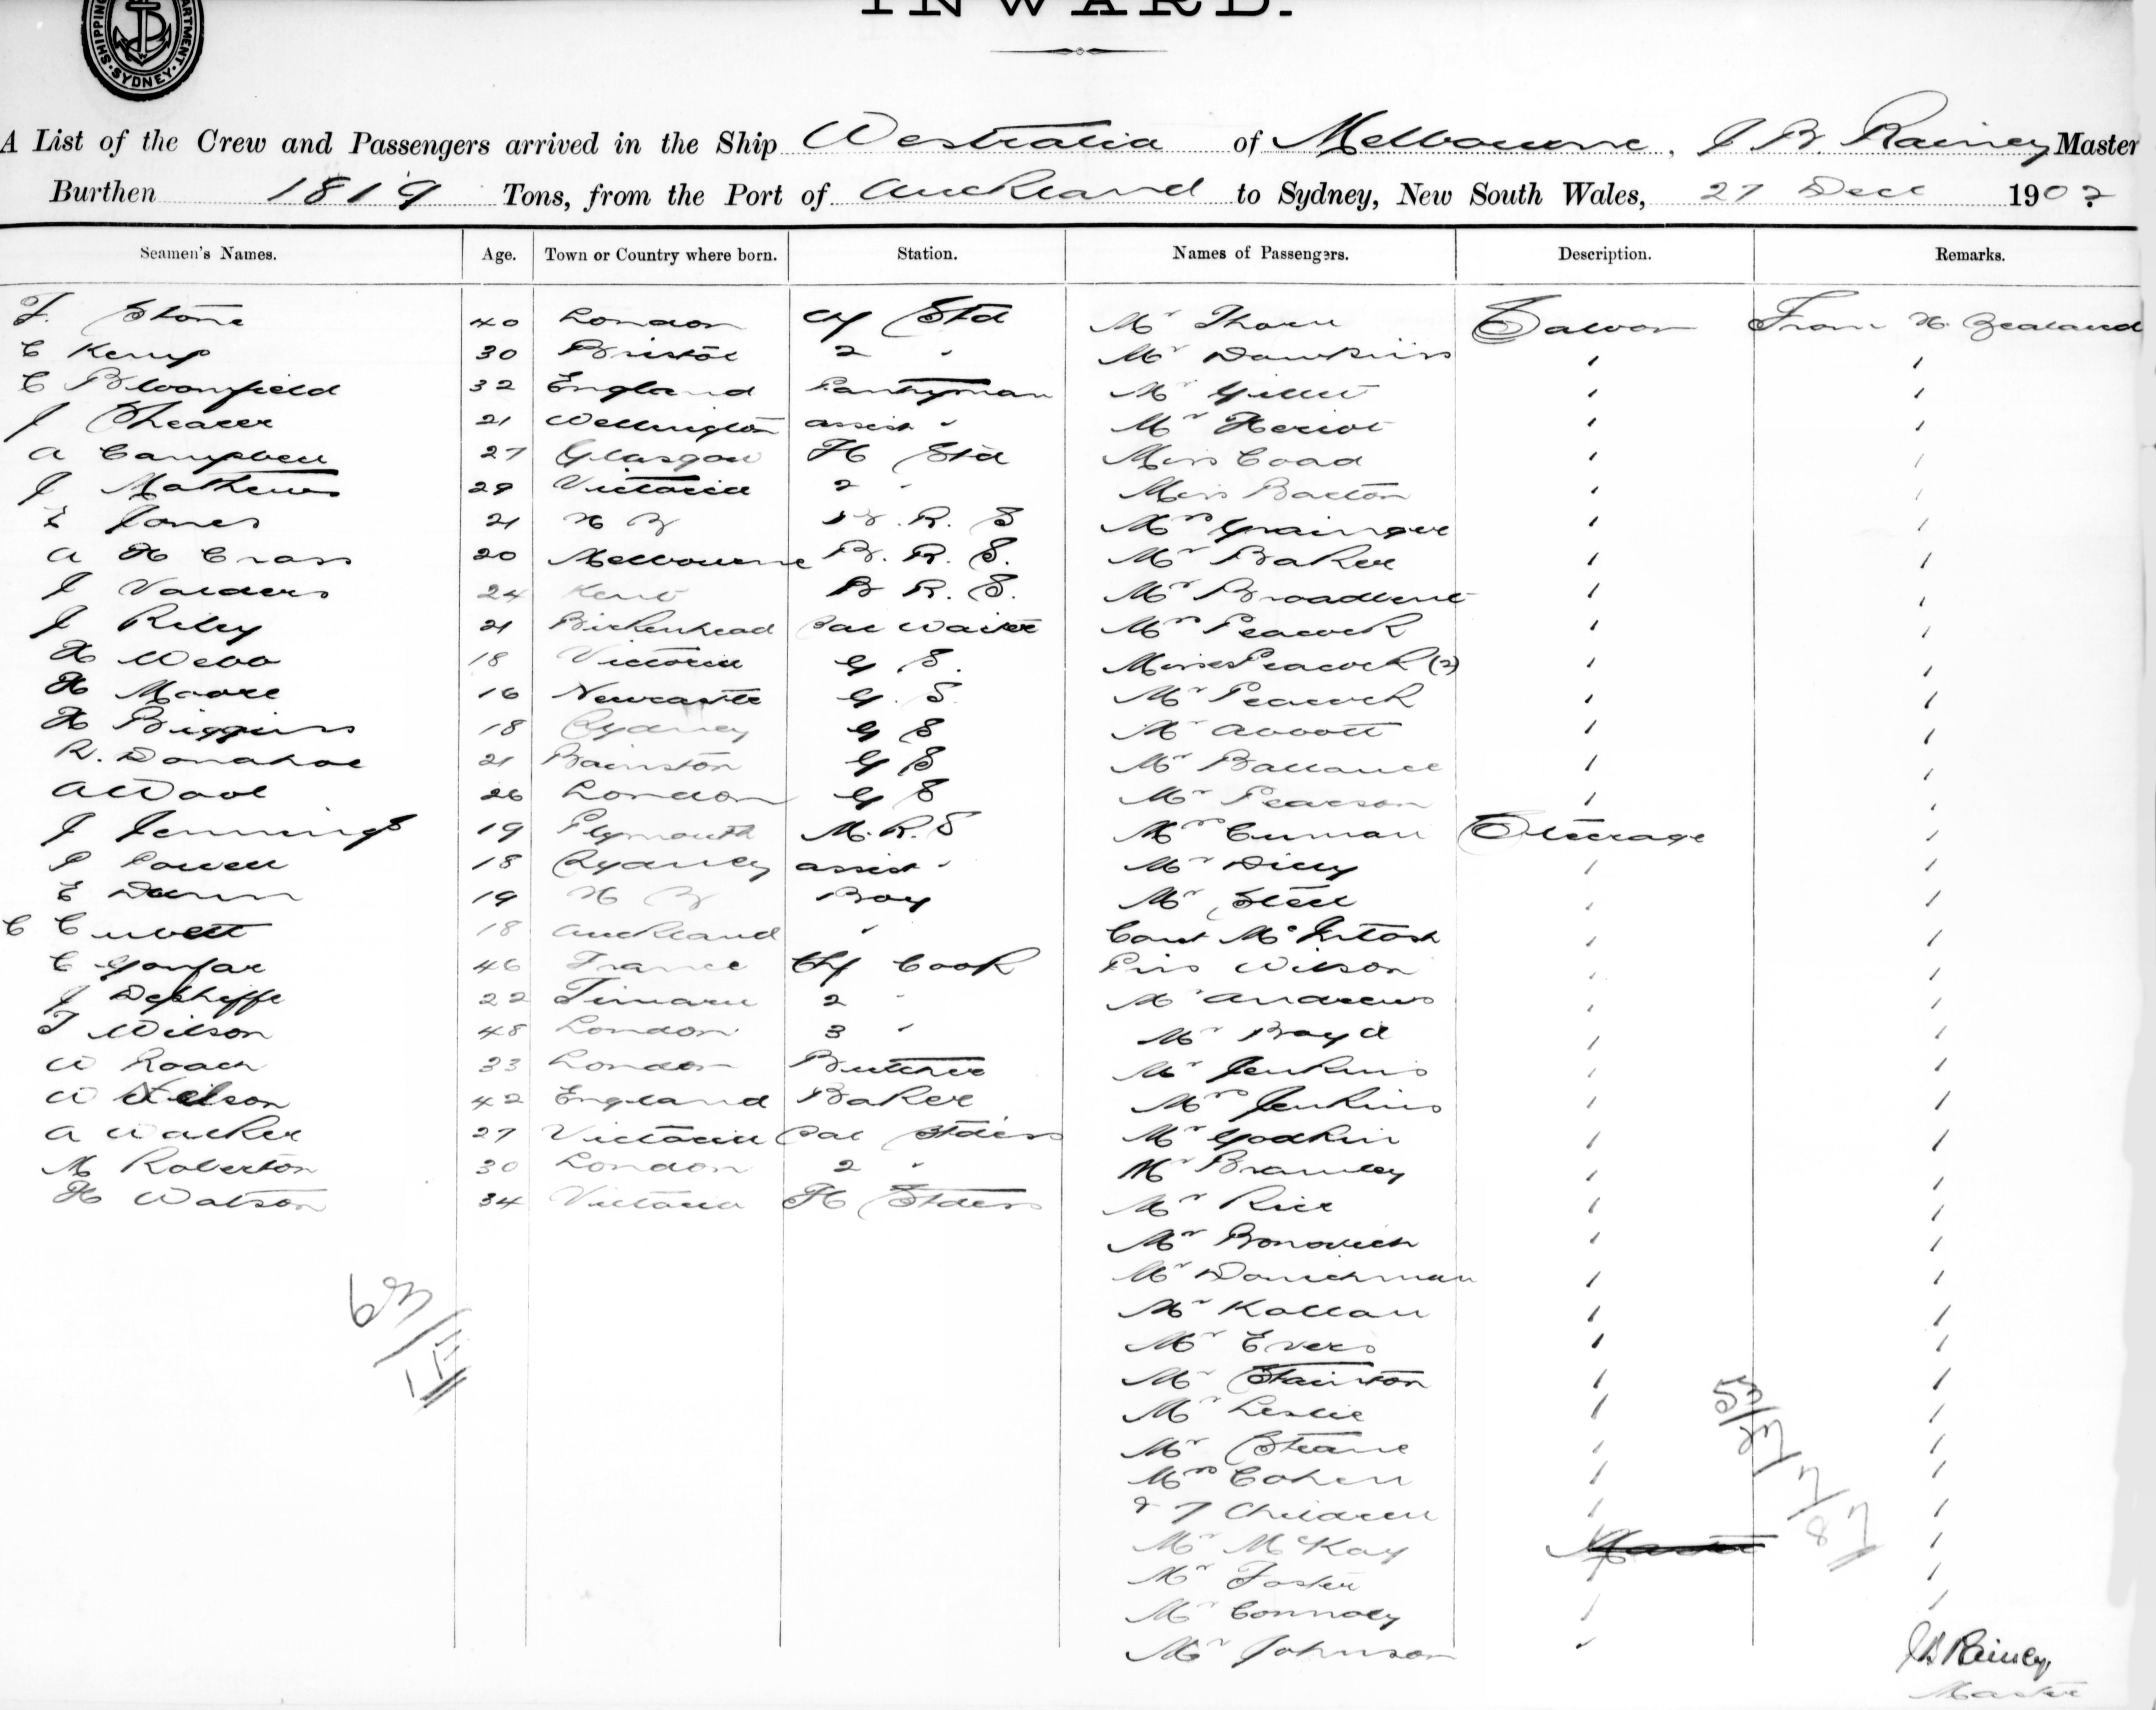 INWARD.
SHIPPING DEPARTMENT. SYDNEY.
A List of the Crew and Passengers arrived in the Ship Westralia of Melbourne, J. B. Rainey Master
Burthen 1819 Tons, from the Port of Auckland to Sydney, New South Wales, 27 Dec 1902
Seamen's Names. Age. Town or Country where born. Station. Names of Passengers. Description. Remarks.
F. Stone 40 London Cf Std Mr Thorn Saloon From N. Zealand
C Kemp 30 Bristol 2 " Mr Dawkins " "
C Bloomfield 32 England Pantryman Mr Gillett " "
J Shearer 21 Wellington assist " Mr Heriot " "
A Campbell 27 Glasgow F Std Miss Coad " "
J Mathews 29 Victoria 2 " Miss Barton " "
E Jones 21 N Z B. R. S Mrs Grainger " "
A H Crass 20 Melbourne B. R. S. Mr Baker " "
J Valders 24 Kent B R. S. Mr Broadbent " "
J Riley 21 Birkenhead Sal Waiter Mrs Peacock " "
H Webb 18 Victoria G S. Misses Peacock (2) " "
H Moore 16 Newcastle G. S. Mr Peacock " "
H Biggins 18 Sydney G S Mr Abbott " "
R. Donahoe 21 G S Mr Ballance " "
A Wool 26 London G S Mr Pearson " "
J Jennings 19 Plymouth M. R. S Mrs Curnan Steerage "
P Powell 18 Sydney assist " Mr Dilly " "
E Dunn 19 N Z Boy Mr Steel " "
C 18 Auckland " Capt McIntosh " "
C 46 France Chf Cook Wilson " "
J 22 Timaru 2 " Mr Andrews " "
T Wilson 48 London 3 " Mr Boyd " "
W Roach 33 London Butcher Mr Jenkins " "
W Nelson 42 England Baker Mrs Jenkins " "
A Walker 27 Victoria Sal Stdess Mr Godkin " "
M Roberton 30 London 2 " Mr Bramley " "
H Watson 34 Victoria F Stdess Mr Rice " "
Mr " "
Mr " "
63 Mr Kallau " "
Mr Evers " "
Mr Stainton " "
Mr Leslie " "
Mr Steane " "
Mrs Cohen " "
& 7 Children " "
Mr McKay "
Mr Foster " "
Mr Connoly " "
Mr Johnson "
J B Rainey
Master